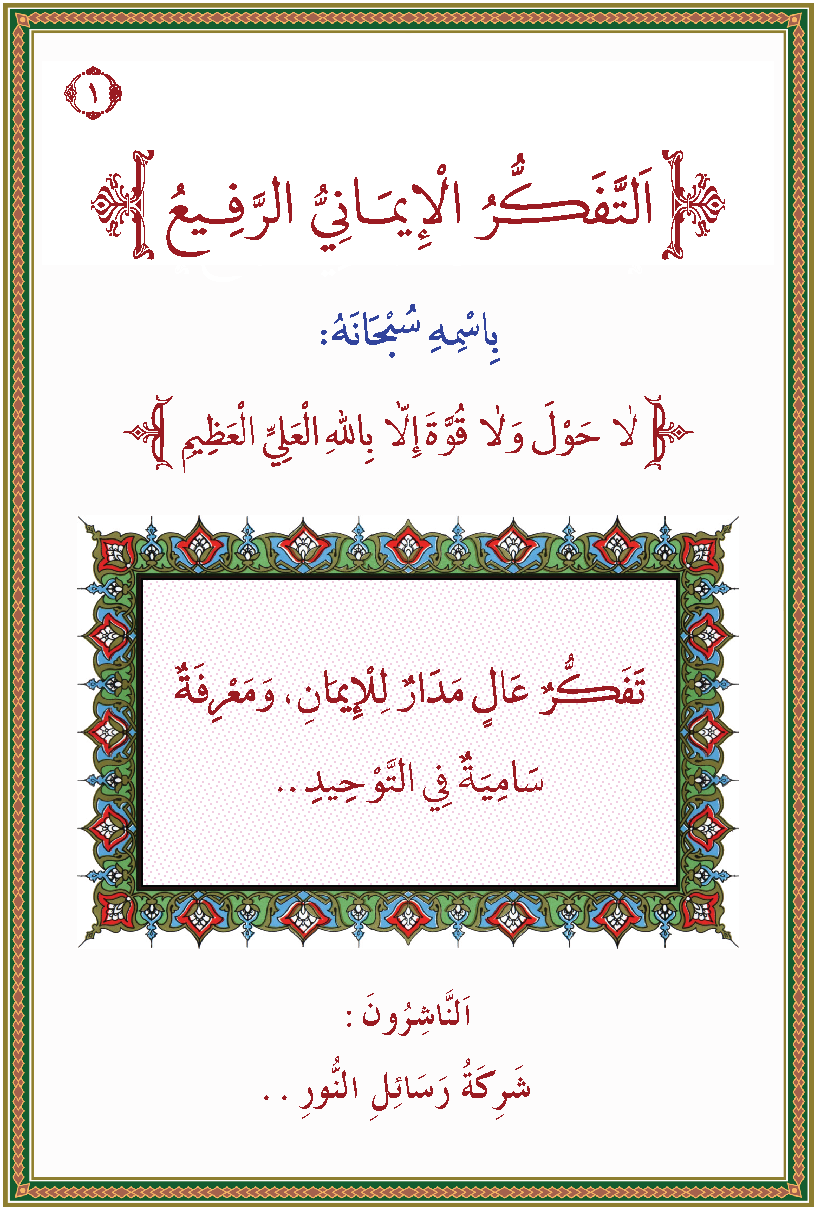 ١
اَلتَّفَكُّرُ الْإِيمَانِيُّ الرَّفِيعُ
بِاسْمِهِ سُبْحَانَهُ:
لَا حَوْلَ وَلَا قُوَّةَ إِلَّا بِاللهِ الْعَلِيِّ الْعَظِيمِ
تَفَكُّرٌ عَالٍ مَدَارٌ لِلْإِيمَانِ، وَمَعْرِفَةٌ
سَامِيَةٌ فِي التَّوْحِيدِ..
اَلنَّاشِرُونَ :
شَرِكَةُ رَسَائِلِ النُّورِ ..